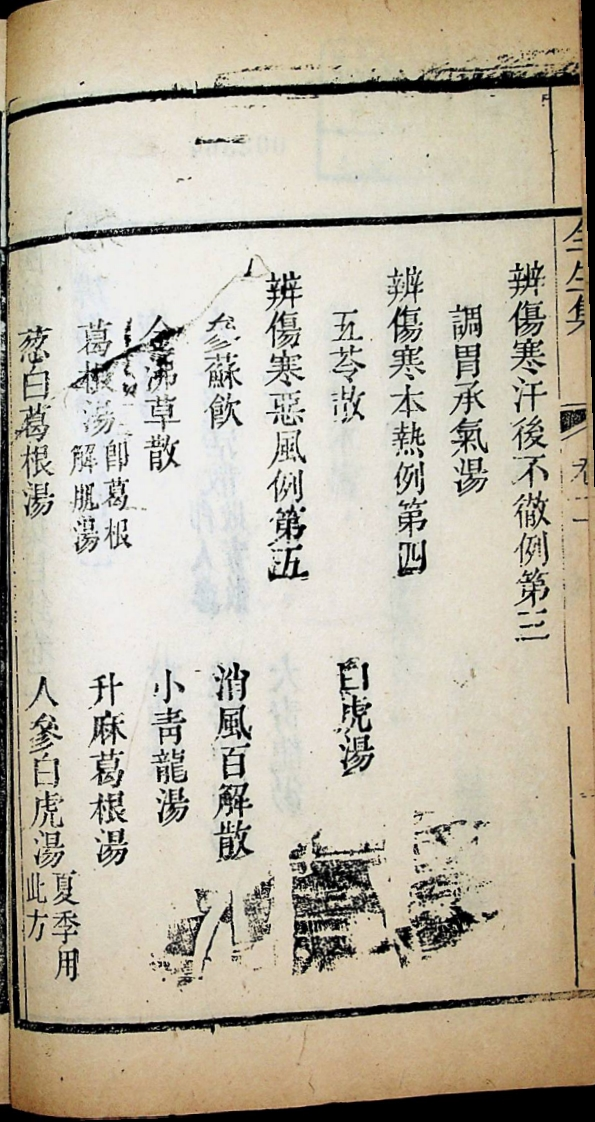 全生集
卷二
辨傷寒汗後不徹例第三
調胃承氣湯
辨傷寒本熱例第四
五苓散
白虎湯
辨傷寒惡風例第五
參蘇飲
消風百解散
金沸草散
小青龍湯
葛根湯即葛根解肌湯
升麻葛根湯
葱白葛根湯
人參白虎湯夏季用此方